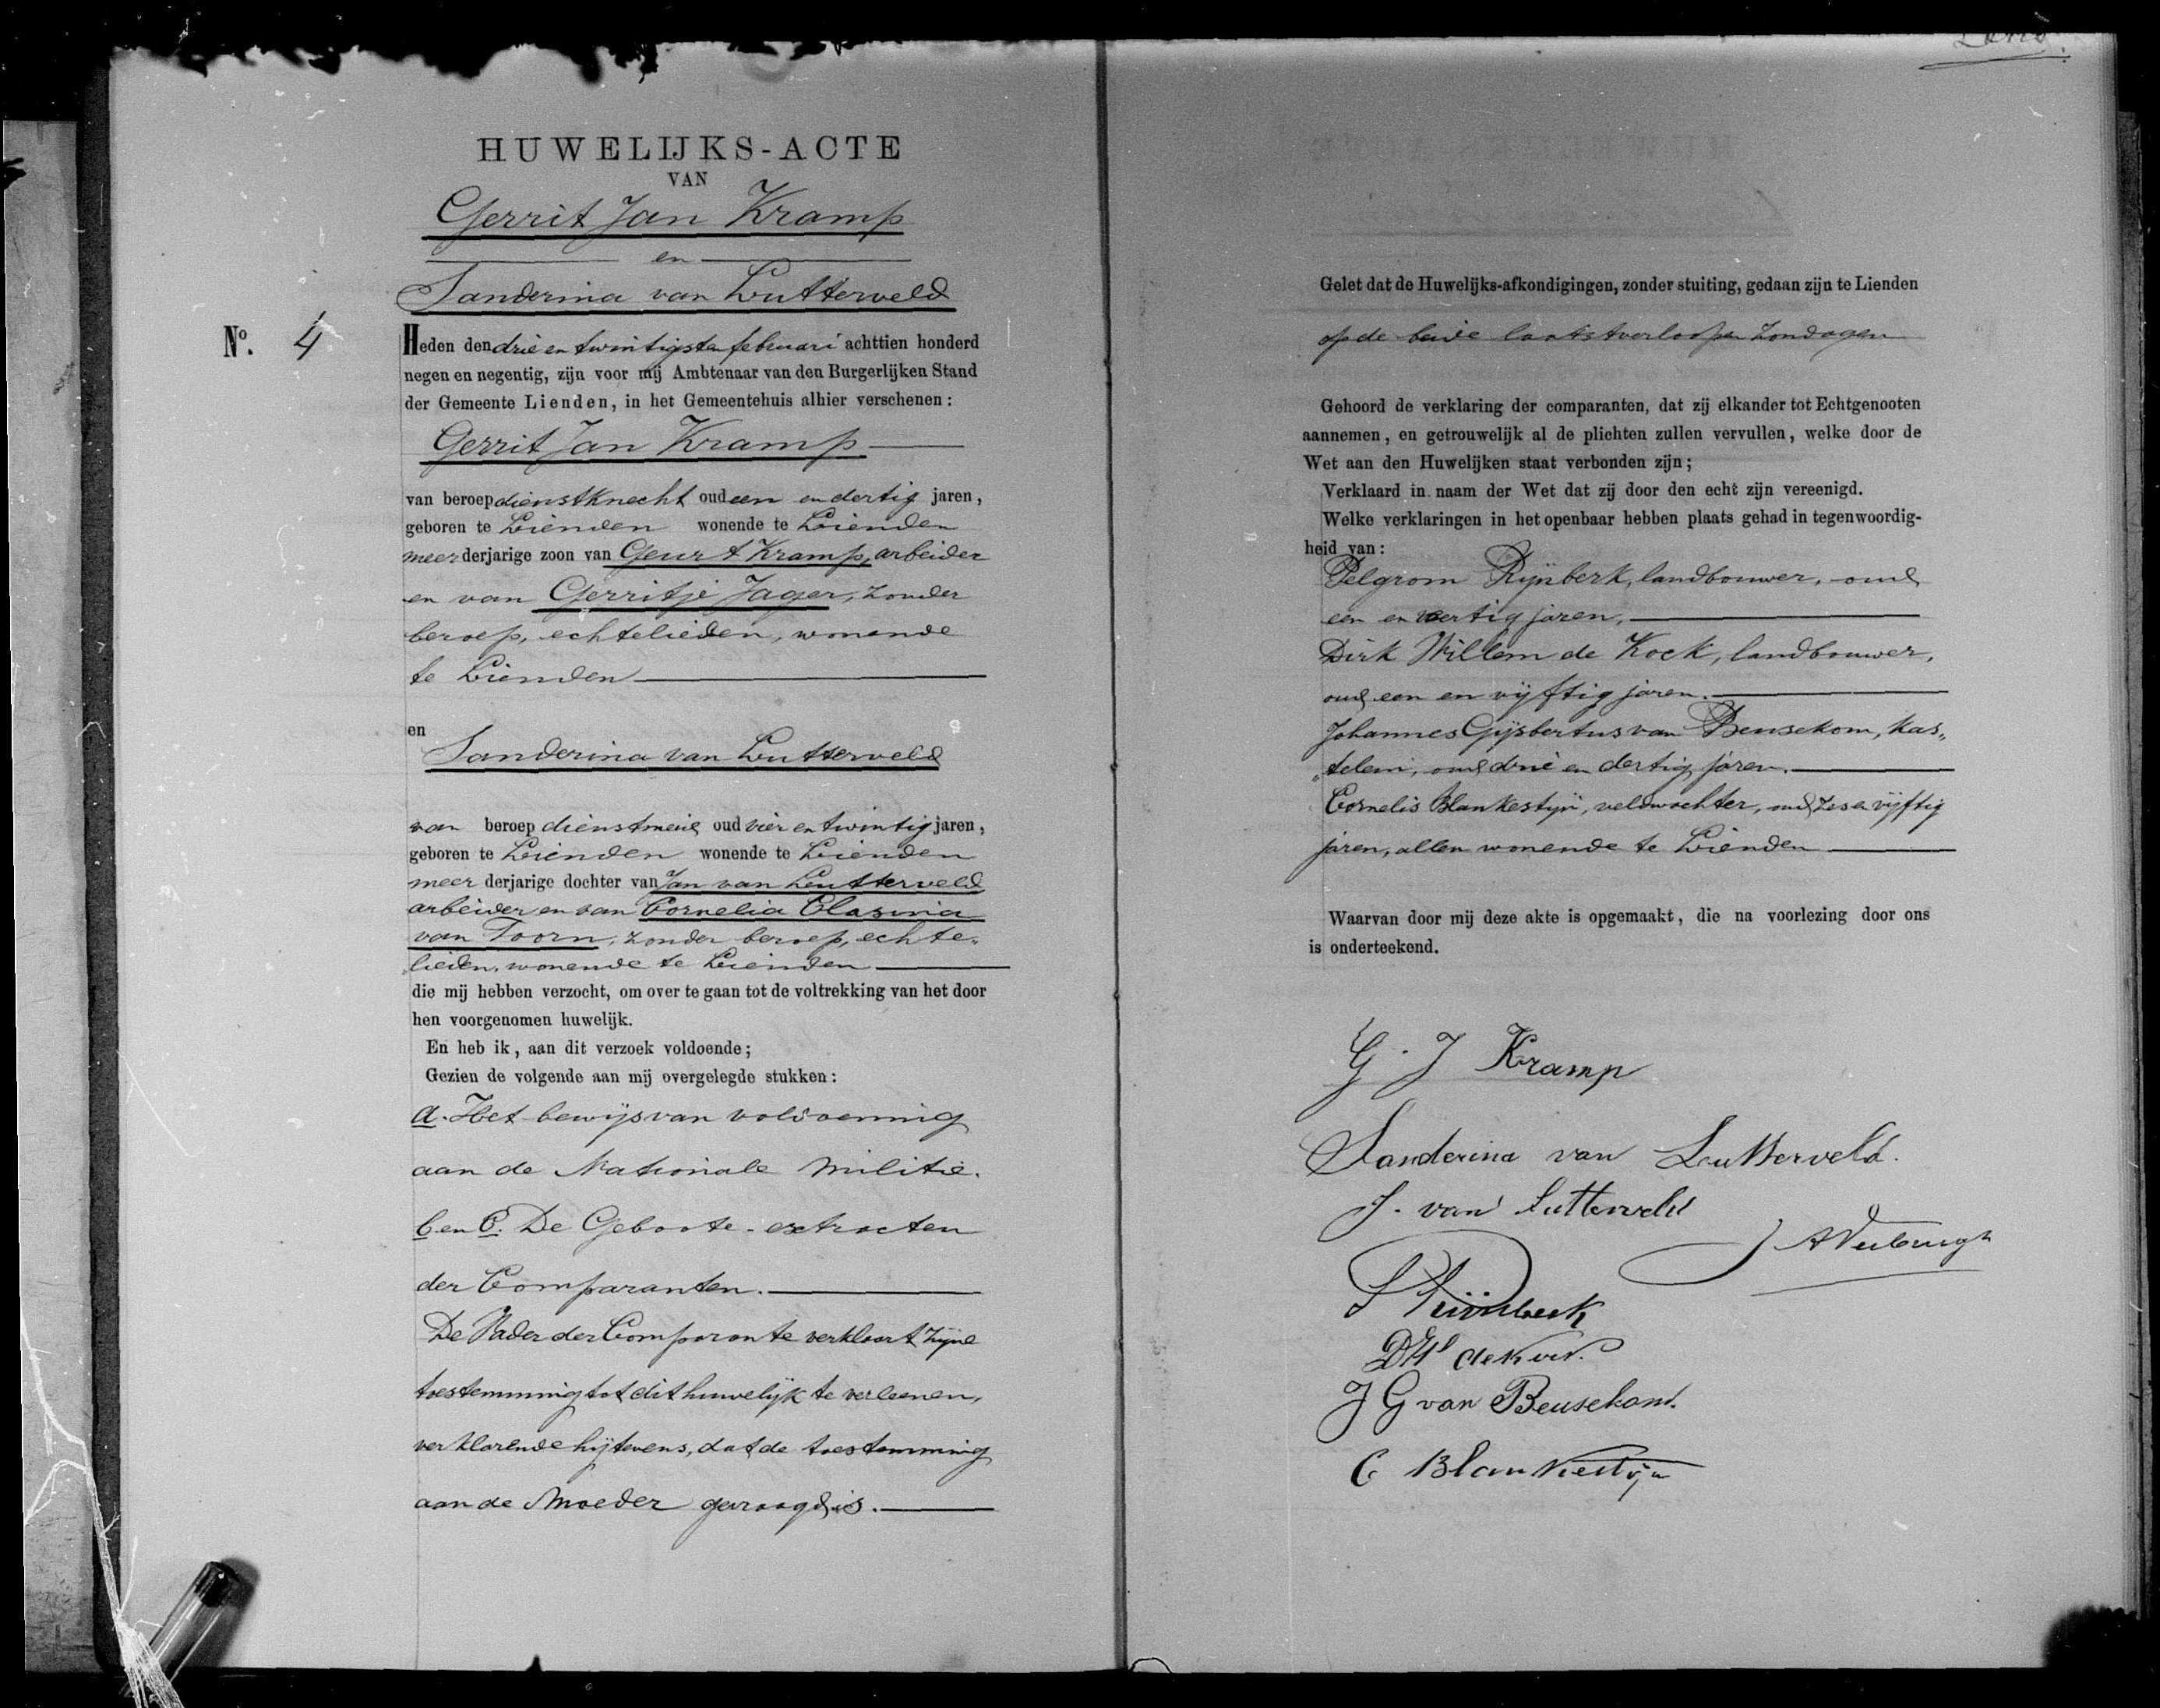 HUWELIJKS-ACTE
VAN
Gerrit Jan Kramp
en
Sanderina van Lutterveld
No. 4
Heden den drie en twintigsten februari achttien honderd
negen en negentig, zijn voor mij Ambtenaar van den Burgerlijken Stand
der Gemeente Lienden, in het Gemeentehuis alhier verschenen:
Gerrit Jan Kramp
van beroep dienstknecht oud een en dertig jaren,
geboren te Lienden wonende te Lienden
meerderjarige zoon van Geurt Kramp, arbeider
en van Gerritje Jager, zonder
beroep, echtelieden, wonende
te Lienden
en
Sanderina van Lutterveld
van beroep dienstmeid oud vier en twintig jaren,
geboren te Lienden wonende te Lienden
meer derjarige dochter van Jan van Lutterveld
arbeider en van Cornelia Clasina
van Toorn, zonder beroep, echte„
lieden, wonende te Lienden
die mij hebben verzocht, om over te gaan tot de voltrekking van het door
hen voorgenomen huwelijk.
En heb ik, aan dit verzoek voldoende;
Gezien de volgende aan mij overgelegde stukken:
a. Het bewijs van voldoening
aan de Nationale Militie.
b en C. De Geboorte-extracten
der Comparanten.
De Vader der Comparante verklaart zijne
toestemming tot dit huwelijk te verleenen,
verklarende hij tevens, dat de toestemming
aan de Moeder gevraagd is.
Gelet dat de Huwelijks-afkondigingen, zonder stuiting, gedaan zijn te Lienden
op de beide laatstverloopen Zondagen
Gehoord de verklaring der comparanten, dat zij elkander tot Echtgenooten
aannemen, en getrouwelijk al de plichten zullen vervullen, welke door de
Wet aan den Huwelijken staat verbonden zijn;
Verklaard in naam der Wet dat zij door den echt zijn vereenigd.
Welke verklaringen in het openbaar hebben plaats gehad in tegenwoordig-
heid van:
Pelgrom Rijnberk, landbouwer, oud
een en veertig jaren,
Dirk Willem de Kock, landbouwer,
oud een en vijftig jaren.
Johannes Gijsbertus van Beusekom, kas„
„telein, oud drie en dertig jaren.
Cornelis Blankestijn, veldwachter, oud zes en vijftig
jaren, allen wonende te Lienden
Waarvan door mij deze akte is opgemaakt, die na voorlezing door ons
is onderteekend.
G. J Kramp
Sanderina van Lutterveld.
J. van Lutterveld
P Rijnberk
DW de Kock.
J G van Beusekom.
C Blankestijn